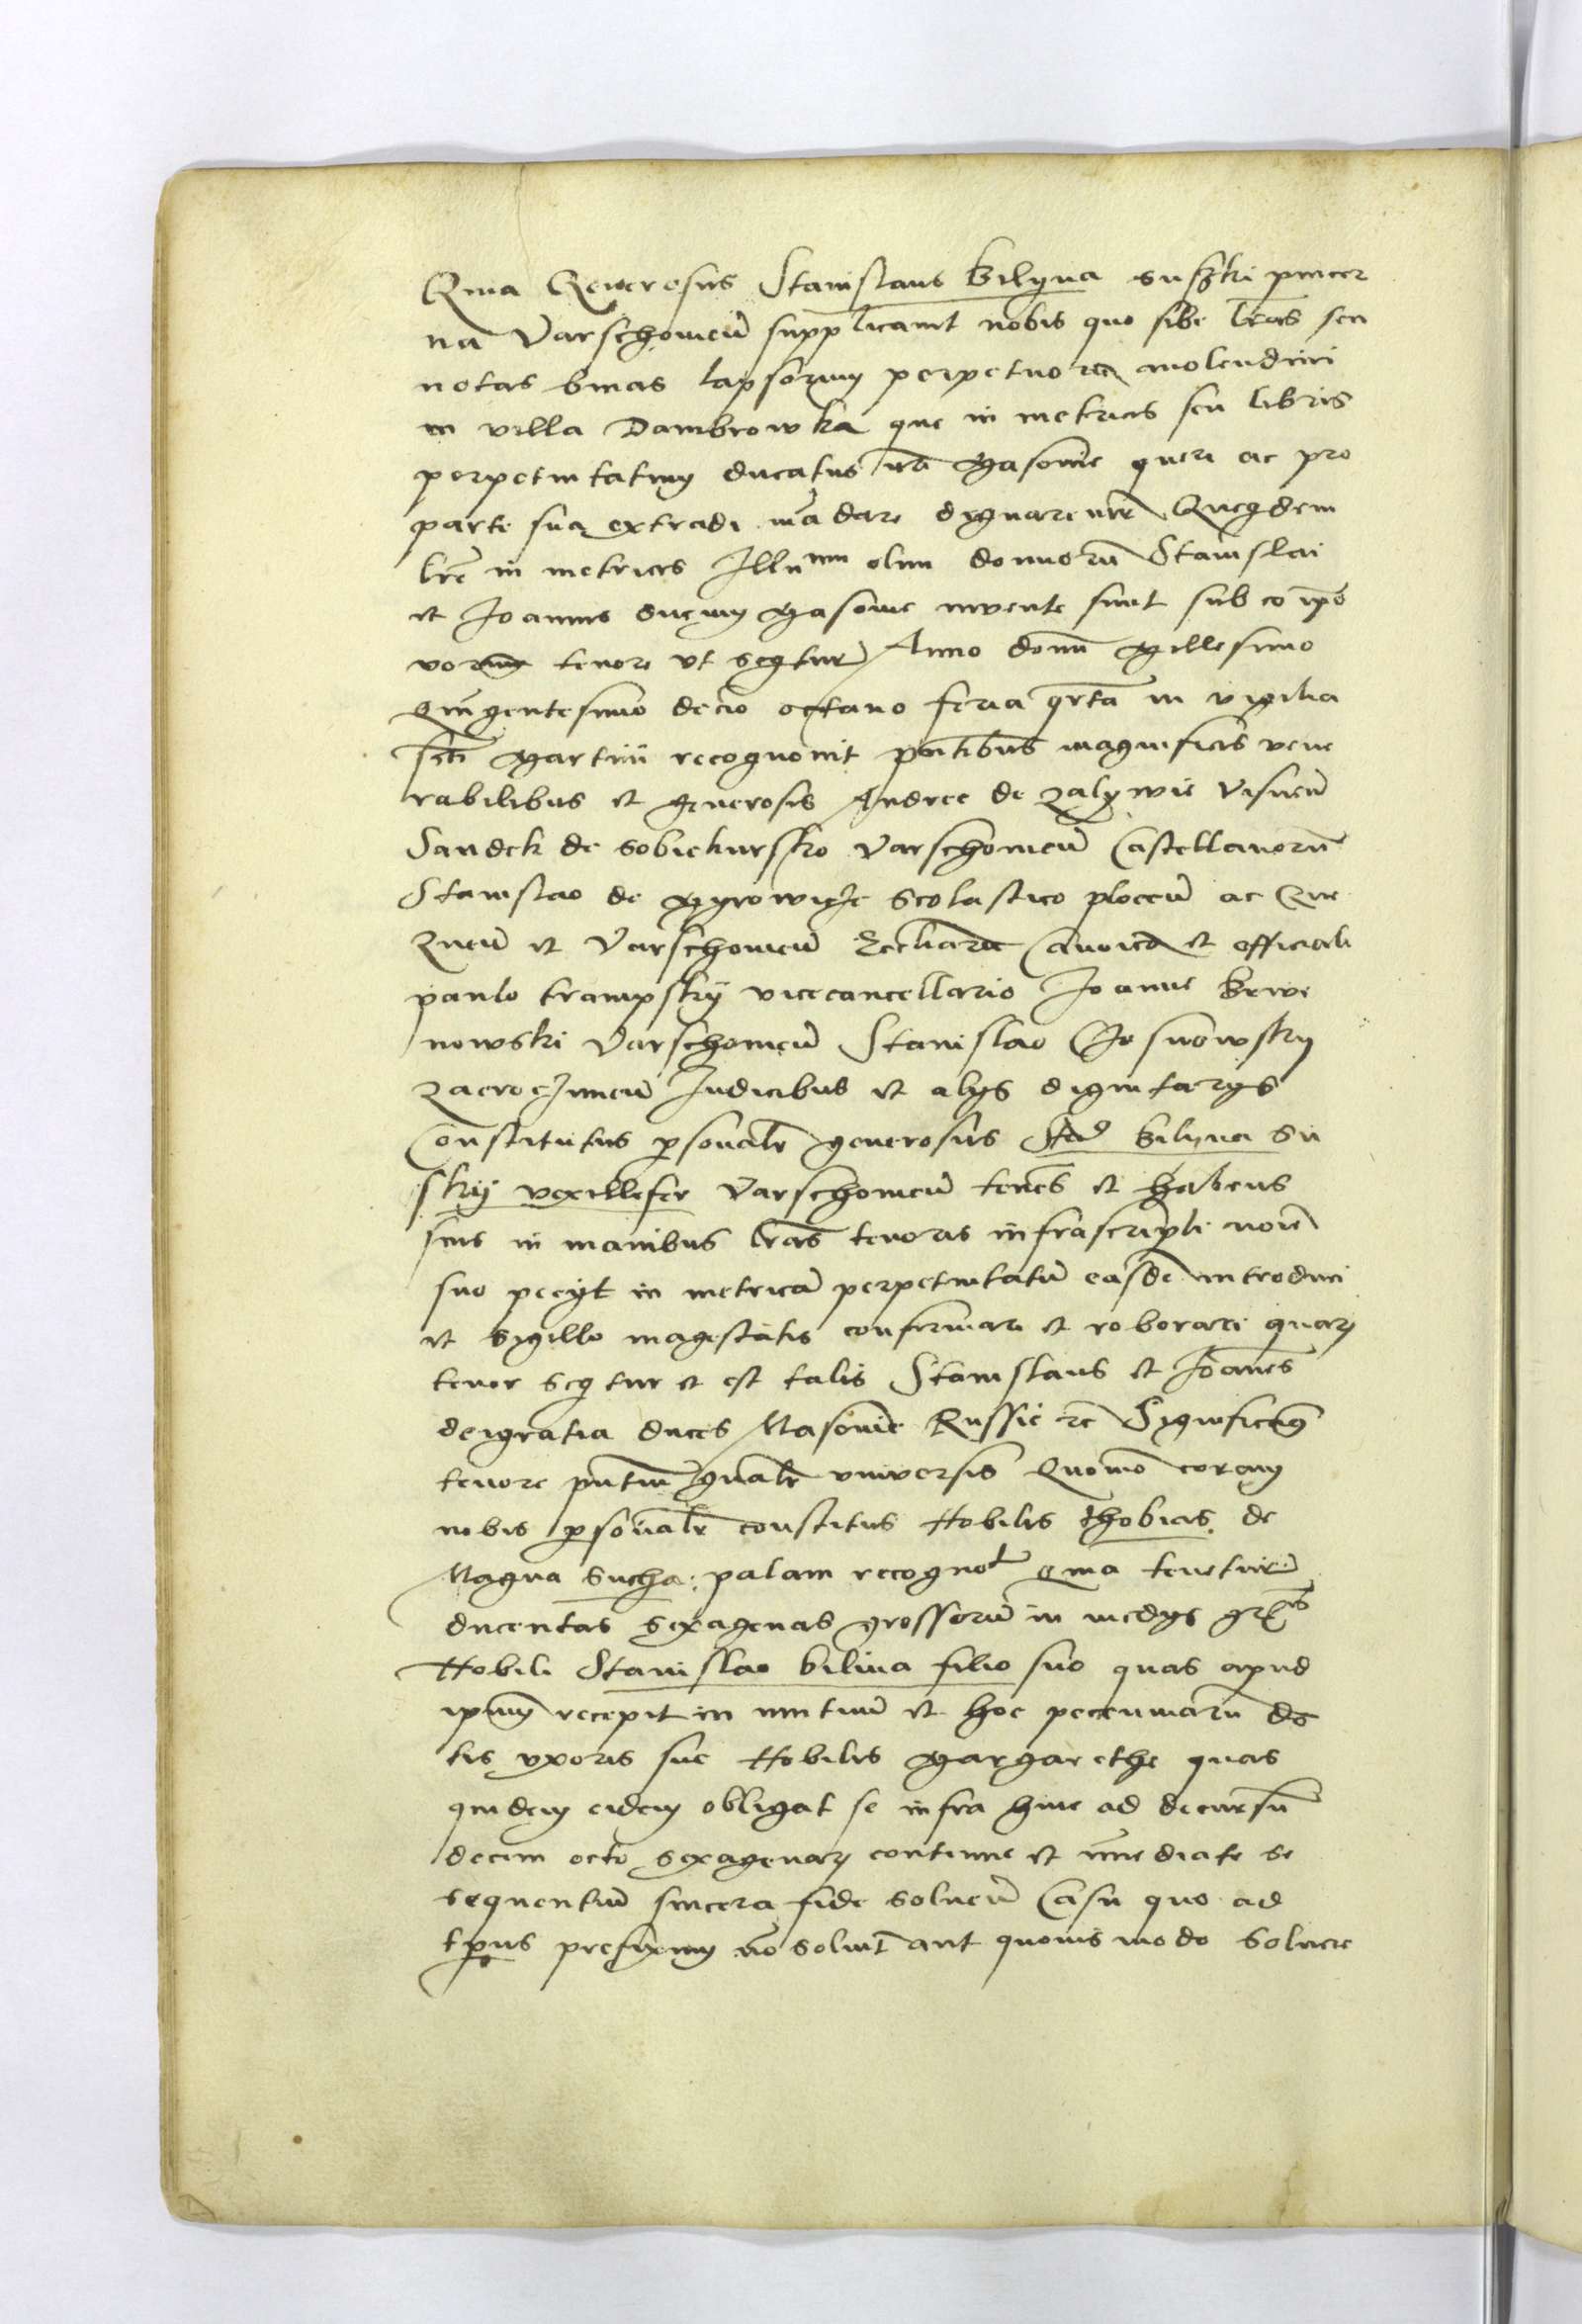 Quia Generosus Stanislaus Bilyna suszki pincer
na Varschowieñ supplicauit nobis quo sibi lr̃as seu
notas binas lapsorum perpetuorum molendini
in villa Dambrowka que in metricis seu libris
perpetuitatum ducatus nr̃i Masouie queri ac pro
parte sua extradi mãdare dignaremur Quequidem
lrẽ in metricis Illumm olim dominorũ Stanislai
et Joannis ducum Masouie inuente sunt sub eo ipõ
tenore vt seqtur Anno domini Millesimo
Quĩgentesimo decio octauo feria qrta in vigilia
scti Martini recognouit pñtibus magnificis vene
rabilibus et generosis Andree de zalywie visneñ
Sandek de sobiekursko Varschowieñ Castellanorũ
Stanislao de Myrowicze scolastico ploceñ ac Gne
zneñ et Varschowieñ Eccliarum Canonico et officiali
paulo trampskÿ vicecancellario Joanne brwi
nowski Varschowieñ Stanislao Gosnowsky
zacroczimeñ Judicibus et alys dignitarys
Constitutus psonalr generosus Stas Bilyna Su
skÿ vexillifer Varschowieñ tenẽs et habens
suis in manibus lr̃as tenoris infrascripti noiẽ
suo peeyt in metricã perpetuitatum easdẽ introduci
et sygillo magestatis confirmari et roborari quarum
tenor seqtur et est talis Stanislaus et Joanes
deigratia duces Masouie Russie rc Sygnificamus
tenore pñtium gñalr vniuersis Quomõ coram
nobis psonalr constitus Nobilis thobias de
Magna Sucha palam recognot quia tenetur
ducentas sexagenas grossorũ in medys grs
Nobili Stanislao bilina filio suo quas apud
ipsum recepit in mutuũ et hoc peccuniarũ do
tis vxoris sue Nobilis Margarethe quas
quidem eidem obligat se infra hinc ad decursũ
decem octo sexagenarum continue et im̃ediate se
sequentiũ sincera fide solueñ Casu quo ad
tpus prefixum nõ soluit aut quouis modo soluere